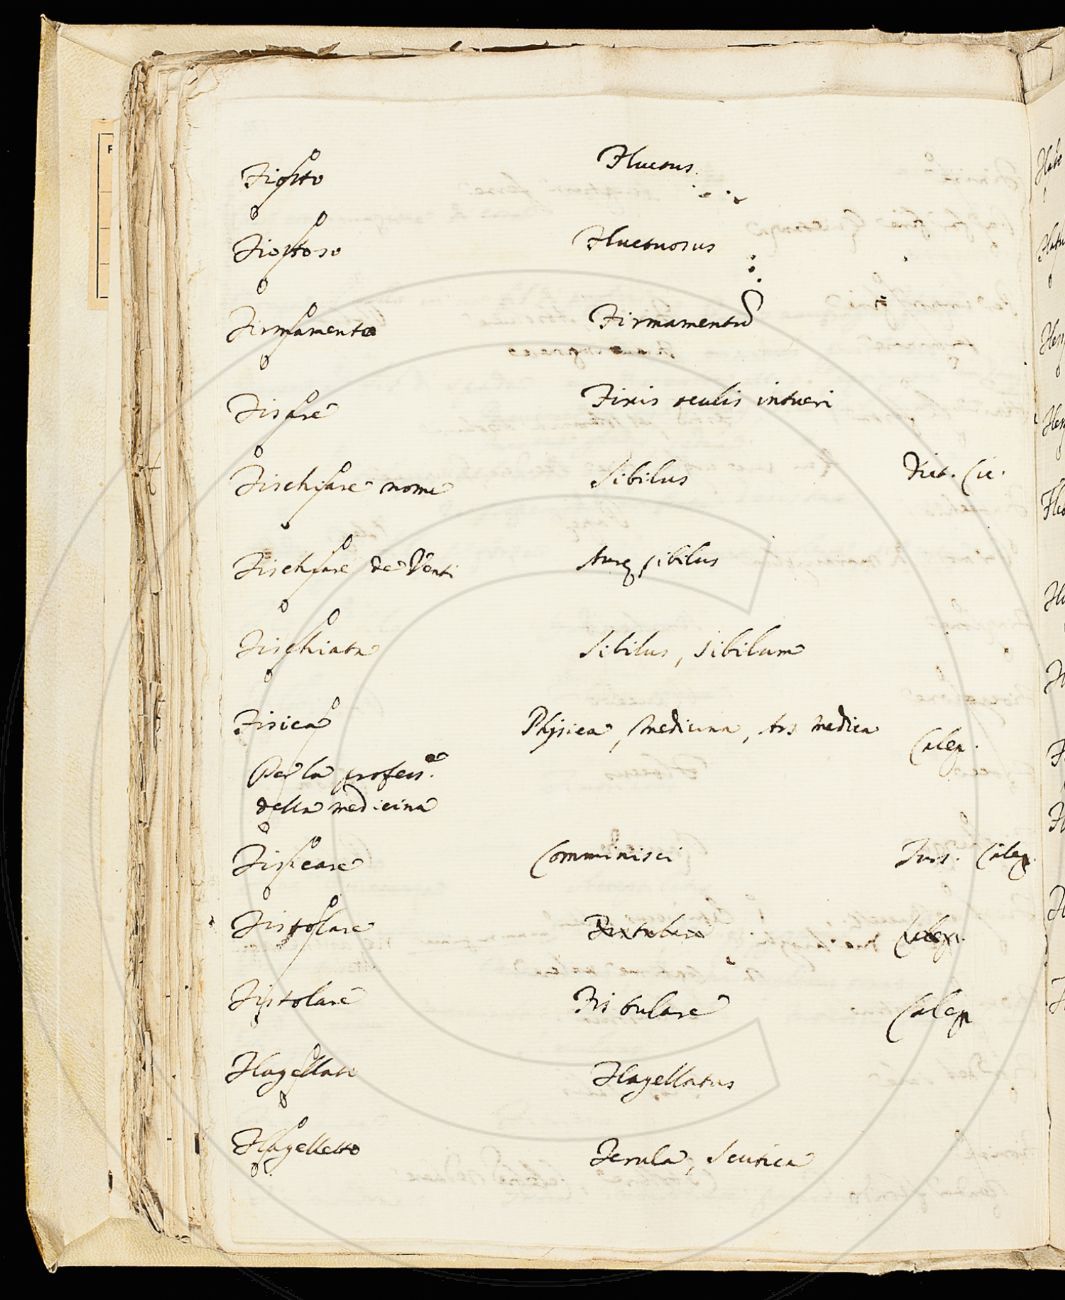 Fiotto Fluctus
Fiottoso Fluctuosus
Firmamento Firmamentũ
Fisare Fixis oculis intueri
Fischiare nome Sibilus Dict. Cic.
Fischiare de Venti Auræ sibilus
Fischiata Sibilus, Sibilum
Fisica Physica, Medicina, Ars Medica Calep.
Per la profess.ne
della medicina
Fiscare Comminisci Turs. Calep.
Fistolare
Fistolare Fistulare Calep
Flagellato Flagellatus
Flagelletto Ferula, Scutica